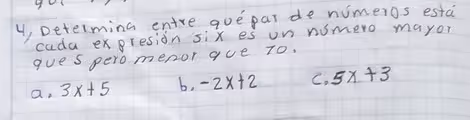 4, Determina entre qué par de números está
cada expresión si x es un número mayor
que 5 pero menor que 10.
a. 3x+5 b. -2x+2 c. 5x+3